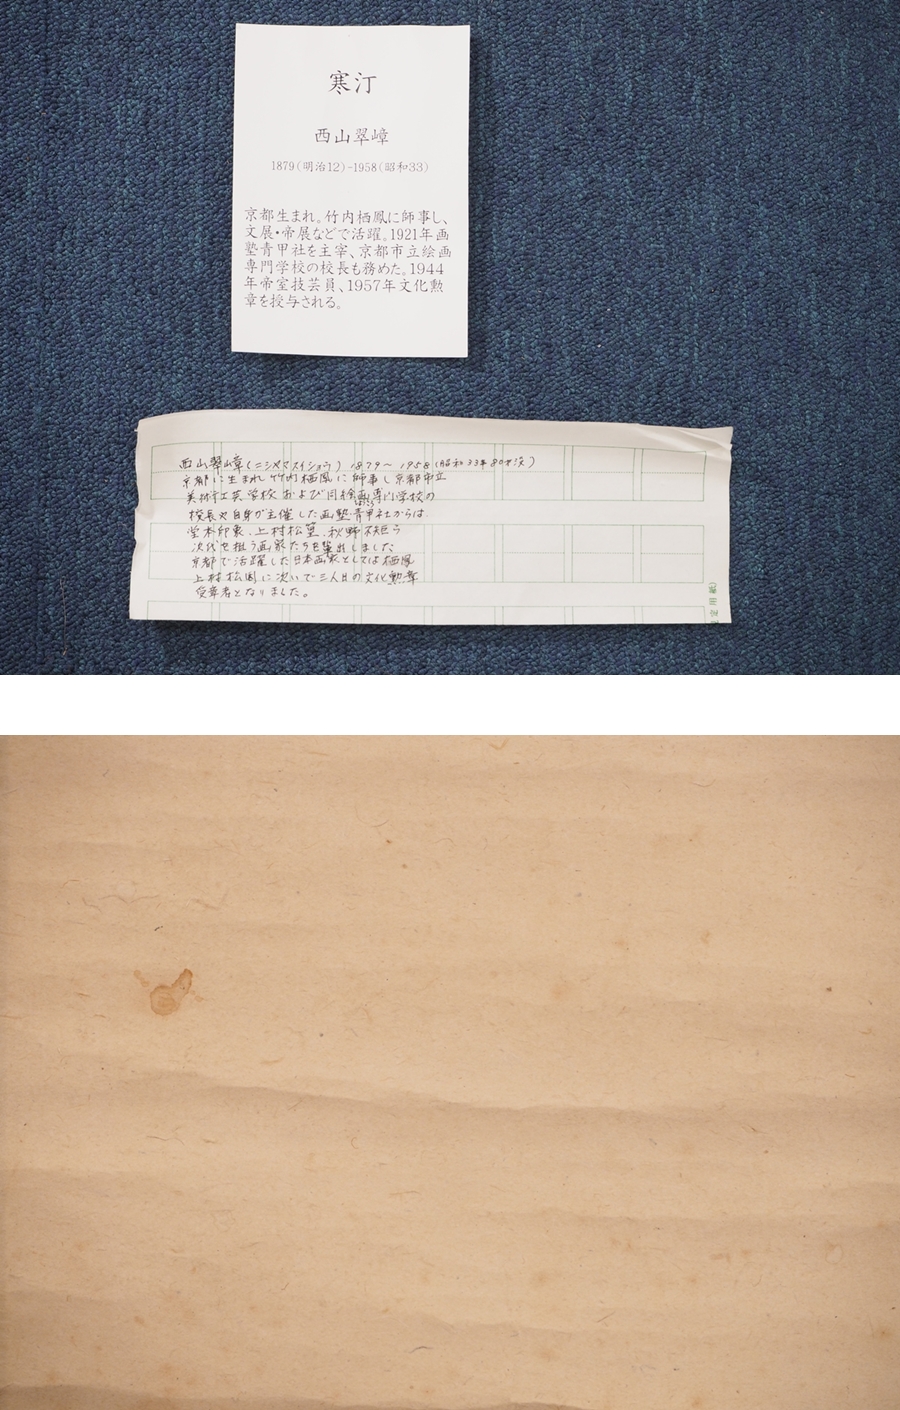 寒汀
西山翠嶂
1879(明治12)-1958(昭和33)
京都生まれ。竹内栖鳳に師事し、
文展・帝展などで活躍。1921年画
塾青甲社を主宰、京都市立絵画
専門学校の校長も務めた。1944
年帝室技芸員、1957年文化勲
章を授与される。
西山翠嶂(ニシヤマスイショウ) 1879〜1958(昭和33年80才没)
京都に生まれ竹内栖鳳に師事し京都市立
美術工芸学校および同絵画専門学校の
校長や自身が主催した画塾青甲社からは
堂本印象、上村松篁、秋野不矩ら
次代を担う画家たちを輩出しました
京都で活躍した日本画家としては栖鳳
上村松園に次いで三人目の文化勲章
受章者となりました。
定用紙)